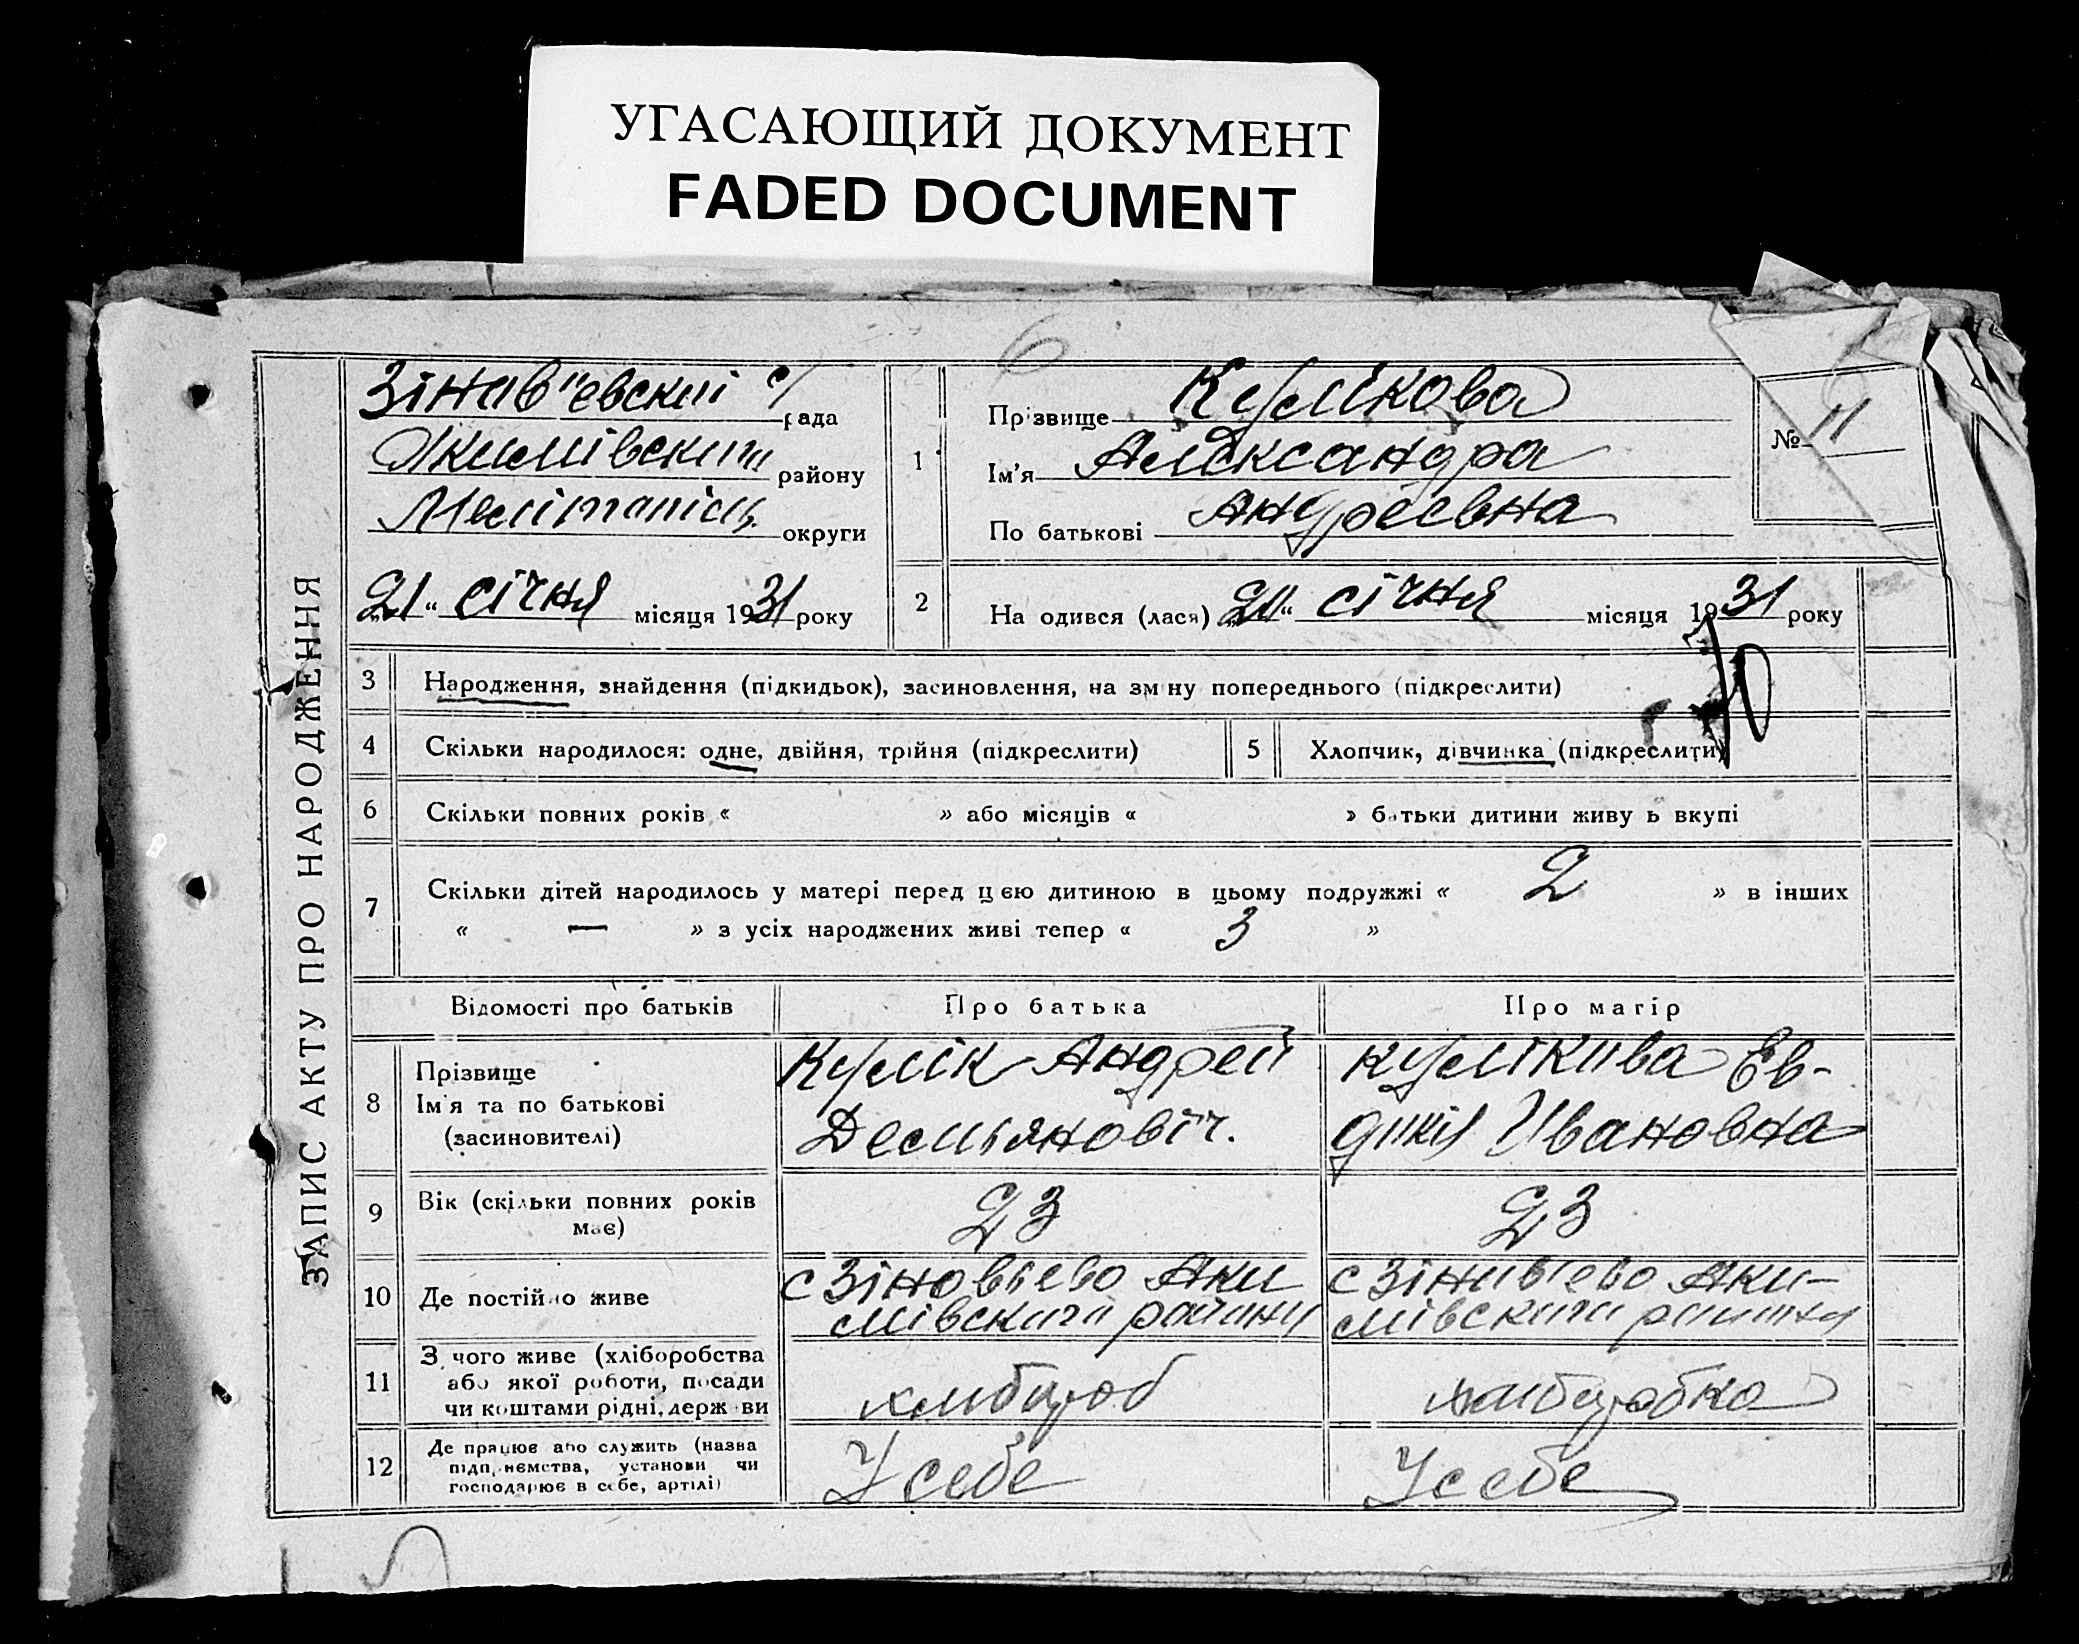 УГАСАЮЩИЙ ДОКУМЕНТ
FADED DOCUMENT
ЗАПИС АКТУ ПРО НАРОДЖЕННЯ
Зінов'ївскиї с/рада
Якимівского району
Мелітопільс. округи
„21“ січня місяця 1931 року
1
Прізвище Кулікова
Ім'я Александра
По батькові Андреевна
№ 11
2
На одився (лася) „20“ січня місяця 1931 року
3 Народження, знайдення (підкидьок), засиновлення, на зм ну попереднього (підкреслити)
4 Скільки народилося: одне, двійня, трійня (підкреслити)
5 Хлопчик, дівчинка (підкреслити)
6 Скільки повних років « » або місяців « » батьки дитини живу ь вкупі
7 Скільки дітей народилось у матері перед цією дитиною в цьому подружжі « 2 » в інших
« — » з усіх народжених живі тепер « 3 »
Відомості про батьків Про батька Про матір
8 Прізвище
Ім'я та по батькові
(засиновителі)
Кулік Андрей
Демьяновіч.
Кулікова Ев-
докія Ивановна
9 Вік (скільки повних років
має)
23
23
10 Де постійно живе
с Зіновьево Аки
мівского району
с Зіновьево Аки-
мівского району
11 З чого живе (хліборобства
або якої роботи, посади
чи коштами рідні, держ ви
хлибороб
хлиборобка
12 Де працює або служить (назва
підпр ємства, установи чи
господарює в себе, артілі)
У себе
У себе